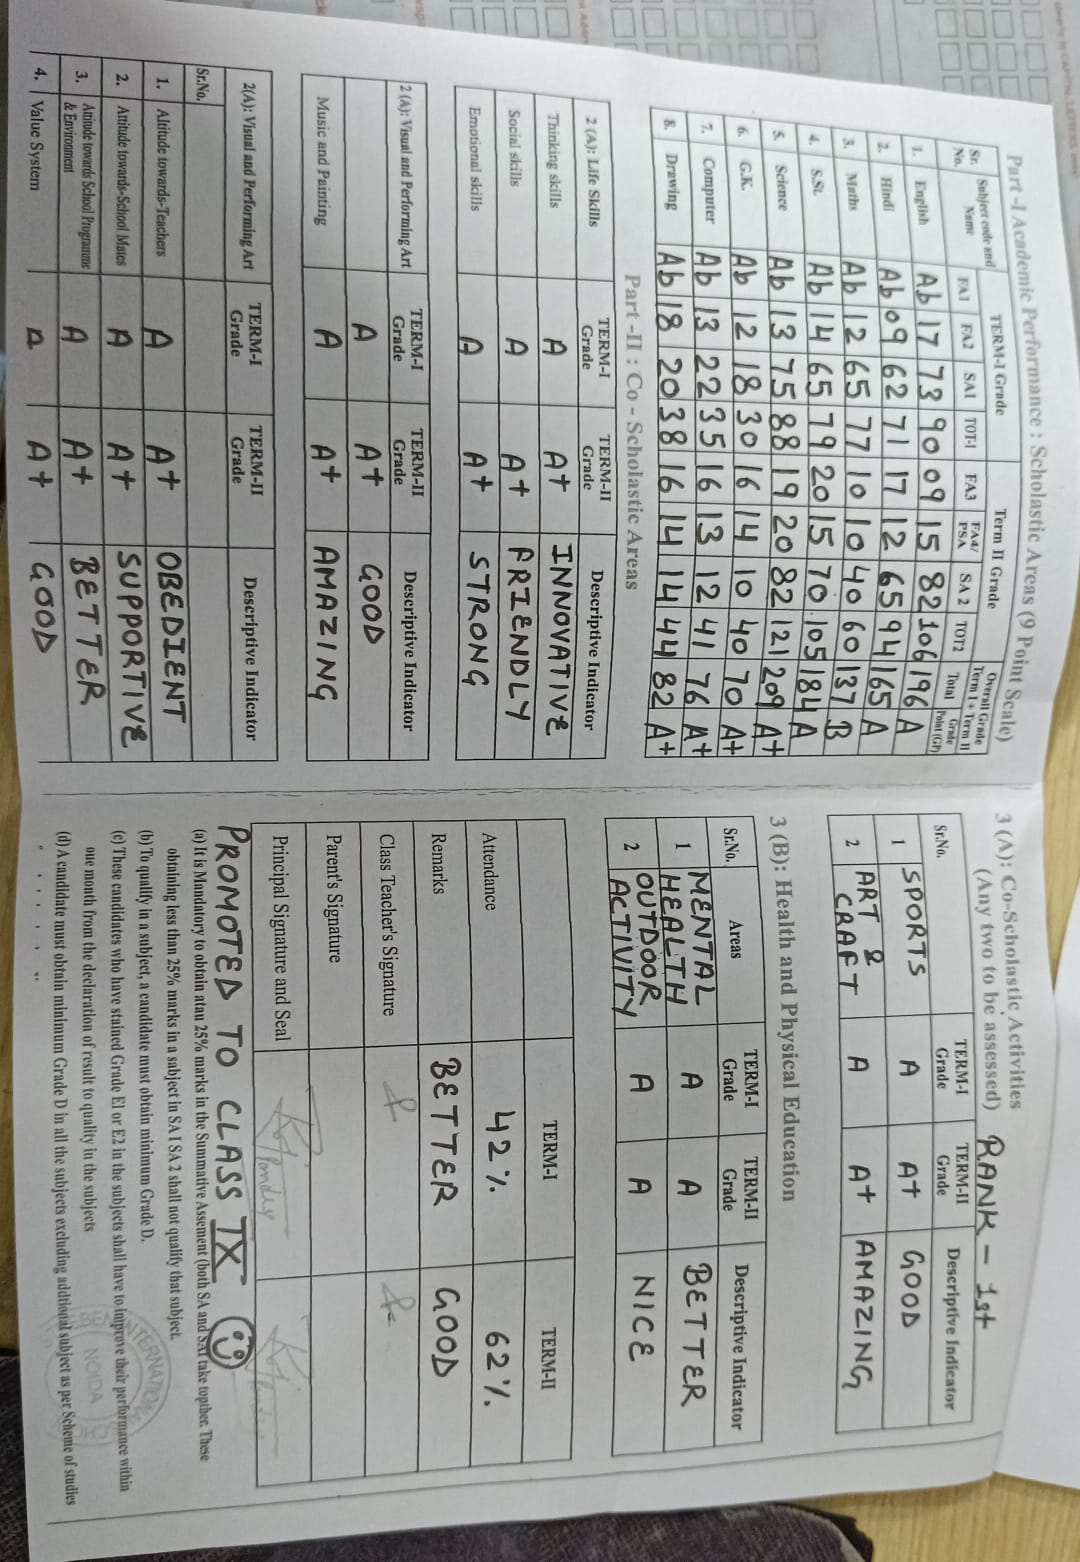 Part -I Academic Performance : Scholastic Areas (9 Point Scale)
Sr. No. Subject code and Name TERM-I Grade Term II Grade Overall Grade Term I + Term II
FA1 FA2 SA1 TOT-1 FA3 FA4/ PSA SA 2 TOT2 Total Grade Point (GP)
1. English Ab 17 73 90 09 15 82 106 196 A
2. Hindi Ab 09 62 71 17 12 65 94 165 A
3. Maths Ab 12 65 77 10 10 40 60 137 B
4. S.St. Ab 14 65 79 20 15 70 105 184 A
5. Science Ab 13 75 88 19 20 82 121 209 A+
6. G.K. Ab 12 18 30 16 14 10 40 70 A+
7. Computer Ab 13 22 35 16 13 12 41 76 A+
8. Drawing Ab 18 20 38 16 14 14 44 82 A+
Part -II : Co - Scholastic Areas
2 (A): Life Skills TERM-I Grade TERM-II Grade Descriptive Indicator
Thinking skills A A+ INNOVATIVE
Social skills A A+ FRIENDLY
Emotional skills A A+ STRONG
2 (A): Visual and Performing Art TERM-I Grade TERM-II Grade Descriptive Indicator
A A+ GOOD
Music and Painting A A+ AMAZING
2(A): Visual and Performing Art TERM-I Grade TERM-II Grade Descriptive Indicator
Sr.No.
1. Altitude towards-Teachers A A+ OBEDIENT
2. Attitude towards-School Mates A A+ SUPPORTIVE
3. Attitude towards School Programme & Environment A A+ BETTER
4. Value System A A+ GOOD
3 (A): Co-Scholastic Activities
(Any two to be assessed) RANK - 1st
Sr.No. TERM-I Grade TERM-II Grade Descriptive Indicator
1 SPORTS A A+ GOOD
2 ART & CRAFT A A+ AMAZING
3 (B): Health and Physical Education
Sr.No. Areas TERM-I Grade TERM-II Grade Descriptive Indicator
1 MENTAL HEALTH A A BETTER
2 OUTDOOR ACTIVITY A A NICE
TERM-I TERM-II
Attendance 42% 62%
Remarks BETTER GOOD
Class Teacher's Signature
Parent's Signature
Principal Signature and Seal
PROMOTED TO CLASS IX
(a) It is Mandatory to obtain atau 25% marks in the Summative Assement (both SA and SAI take topther. These
obtaining less than 25% marks in a sabject in SA I SA 2 shall not qualify that subject.
(b) To qualify in a subject, a candidate must obtain minimum Grade D.
(c) These candidates who have stained Grade El or E2 in the subjects shall have to improve their performance within
one month from the declaration of result to quality in the subjects
(d) A candidate must obtain minimum Grade D in all the subjects excluding addtional subject as per Scheme of studies
NOIDA